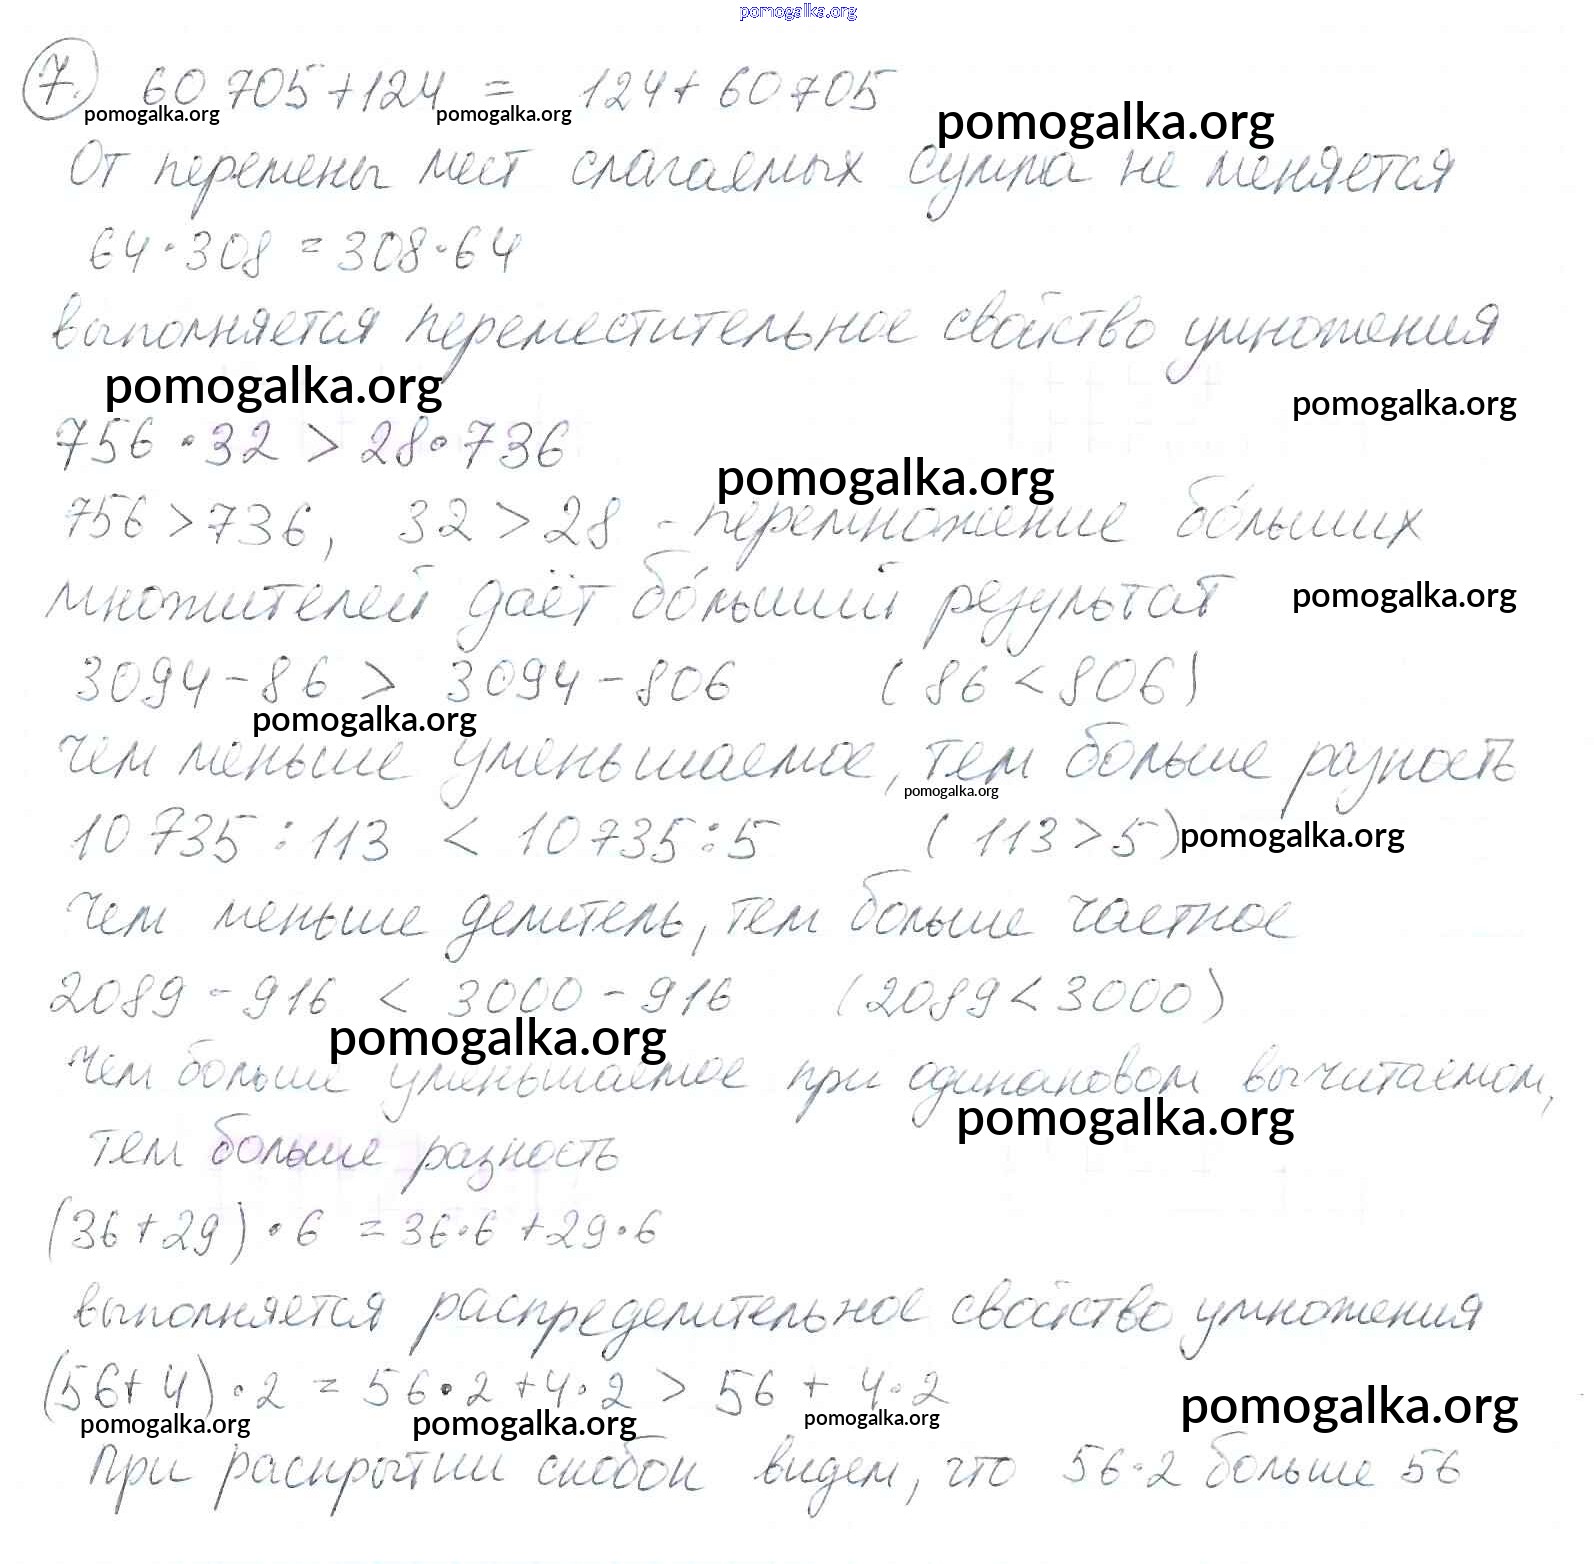 pomogalka.org
7. 60 705 + 124 = 124 + 60 705
pomogalka.org pomogalka.org pomogalka.org
От перемены мест слагаемых сумма не меняется
64 · 308 = 308 · 64
выполняется переместительное свойство умножения
pomogalka.org pomogalka.org
756 · 32 > 28 · 736
pomogalka.org
756 > 736, 32 > 28 - перемножение бóльших
множителей даёт бóльший результат pomogalka.org
3094 - 86 > 3094 - 806 (86 < 806)
pomogalka.org
чем меньше уменьшаемое, тем больше разность
pomogalka.org
10 735 : 113 < 10 735 : 5 (113 > 5) pomogalka.org
Чем меньше делитель, тем больше частное
2089 - 916 < 3000 - 916 (2089 < 3000)
pomogalka.org
Чем больше уменьшаемое при одинаковом вычитаемом,
pomogalka.org
тем больше разность
(36 + 29) · 6 = 36 · 6 + 29 · 6
выполняется распределительное свойство умножения
(56 + 4) · 2 = 56 · 2 + 4 · 2 > 56 + 4 · 2
pomogalka.org pomogalka.org pomogalka.org pomogalka.org
При раскрытии скобок видем, что 56 · 2 больше 56